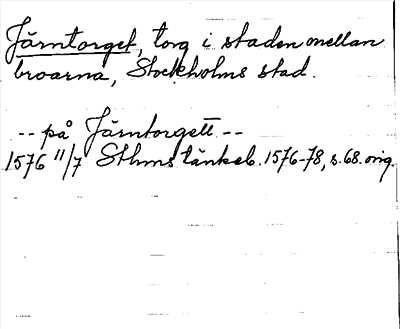 Järntorget, torg i staden mellan
broarna, Stockholms stad.
-- på Järntorgett --
1576 11/7 Sthms tänkeb. 1576-78, s. 68. orig.